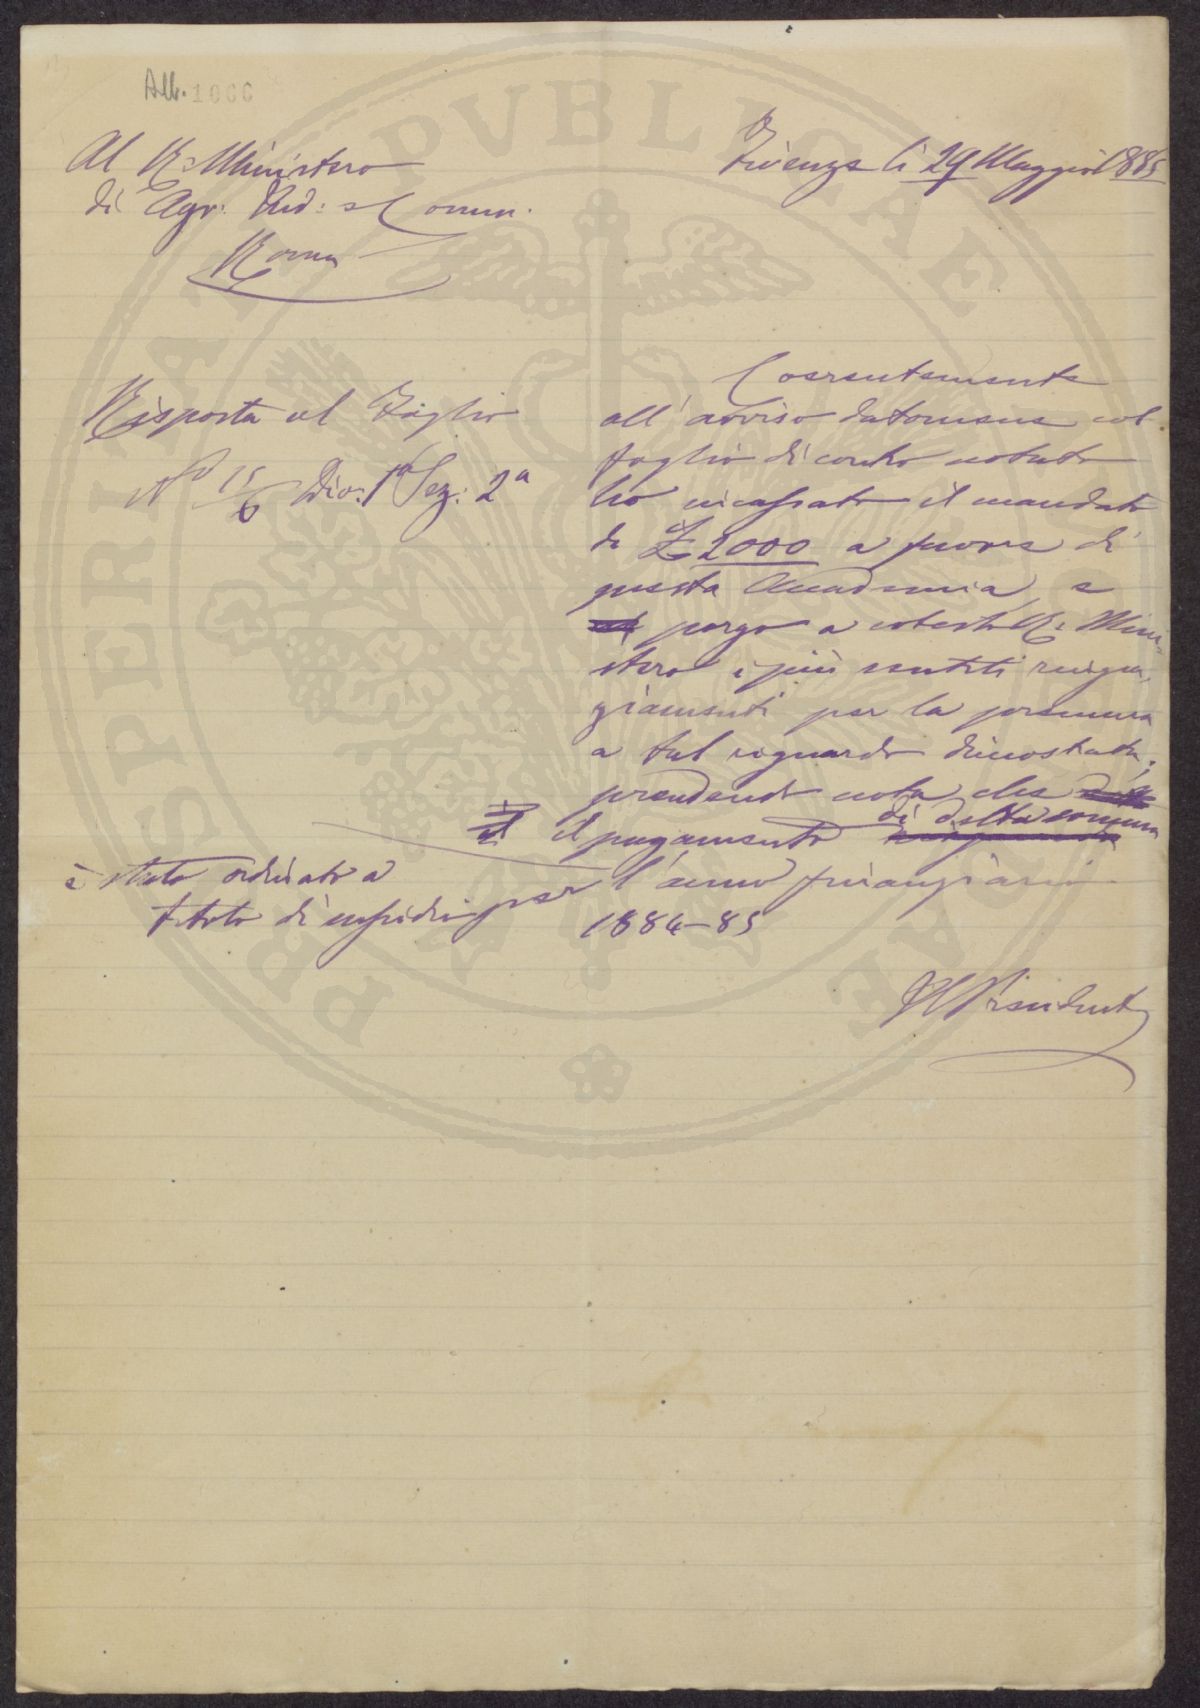 All. 1066
Firenze li 29 Maggio 1885
Al R. Ministero
di Agr: Ind: e Comm.
Roma
Risposta al Foglio
N° 15/6 Div: 1ª Sez: 2ª
Coerentemente
all'avviso datomene col
foglio di contro notato
ho incassato il mandato
di £ 2000 a favore di
questa Accademia, e
porgo a cotesto R: Mini=
stero i più sentiti ringra=
ziamenti per la premura
a tal riguardo dimostrata;
prendendo nota che
il pagamento di detta somma
è stato ordinato a
titolo di sussidio per l'anno finanziario
1884-85
Il Presidente
PROSPERITATI PVBLICAE AVGENDAE